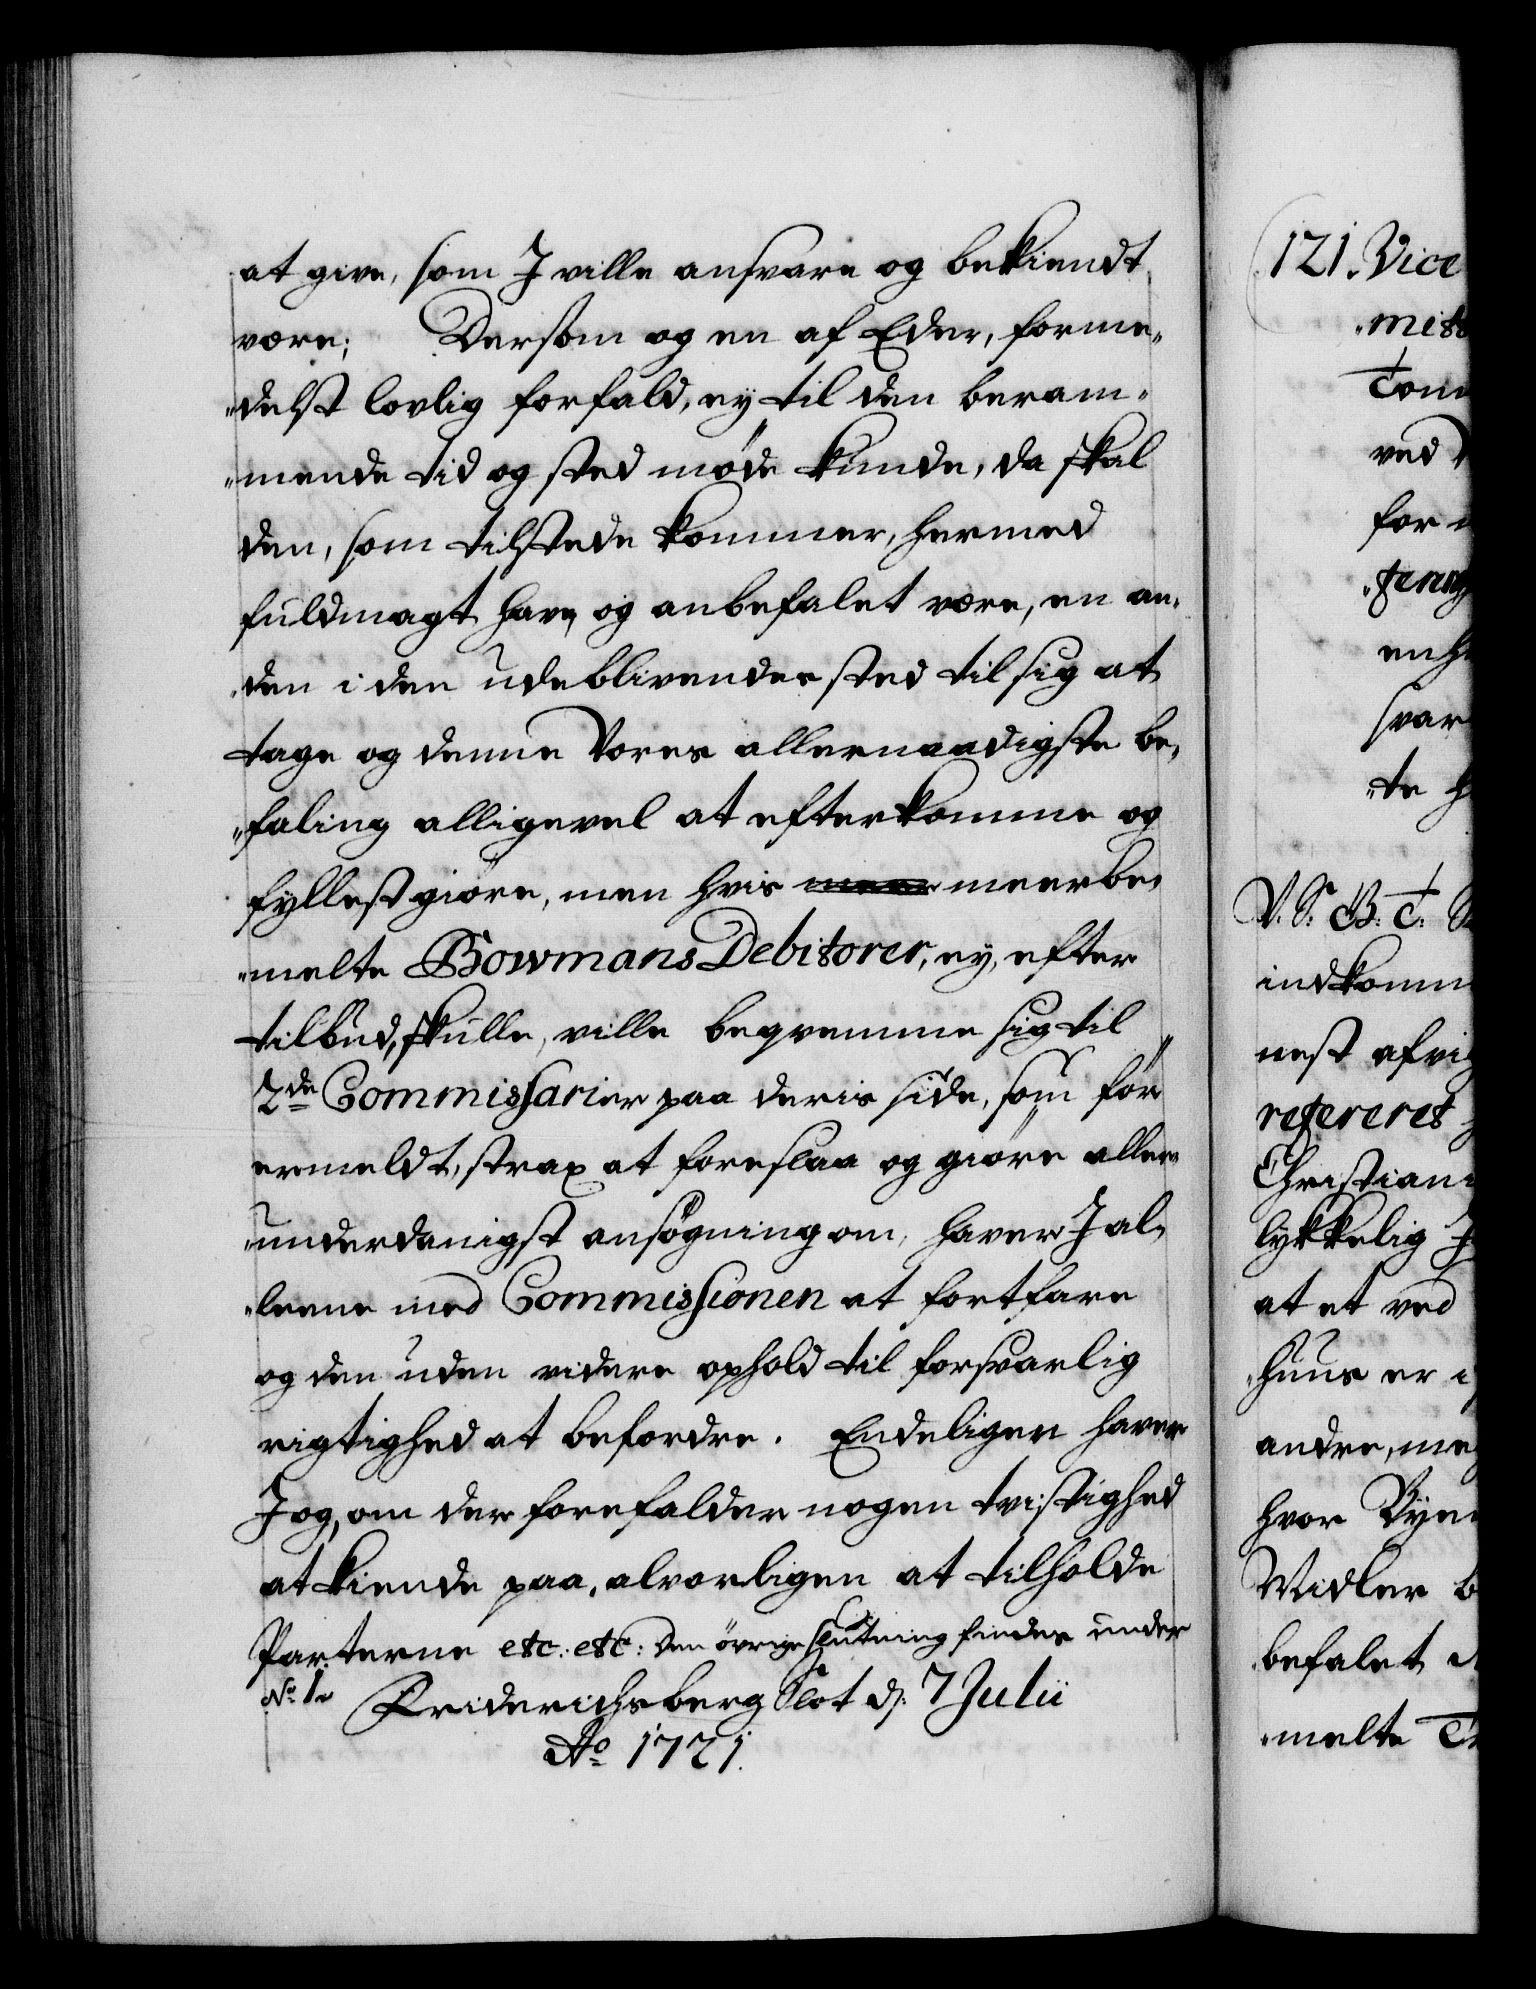 at give, som I ville ansvare og bekiendt
være; Dersom og en af Eder, forme„
„delst lovlig forfald, ey til den beram„
„mende tid og sted møde kunde, da skal
den, som tilstede kommer, hermed
fuldmagt have og anbefalet være, en an„
„den i den udeblivendes sted til sig at
tage og denne Vores allernaadigste be„
„faling alligevel at efterkomme og
fyllestgiøre, men hvis meerbe„
„melte Bowmans Debitorer, ey, efter
tilbud, skulle, ville beqvemme sig til
2de Commissarier paa deris side, som før
ermeldt, strax at foreslaa og giøre aller„
„underdanigst ansøgning om, haver I al„
„leene med Commissionen at fortfare
og den uden videre ophold til forsvarlig
rigtighed at befordre. Endeligen haver
I og, om der forefalder nogen tvistighed
at kiende paa, alvorligen at tilholde
Parterne etc: etc: den øvrige slutning findes under
No 1. Friderichsberg Slot d: 7 Julii
Ao 1721.
121. Vice
ved
for
svar
„te
V. S. B. T.
indkomm
nest afvig
refereret
Christiani
lykkelig
at et ved
„huus er
andre, me
hvor Byen
Midler
befalet
„melte